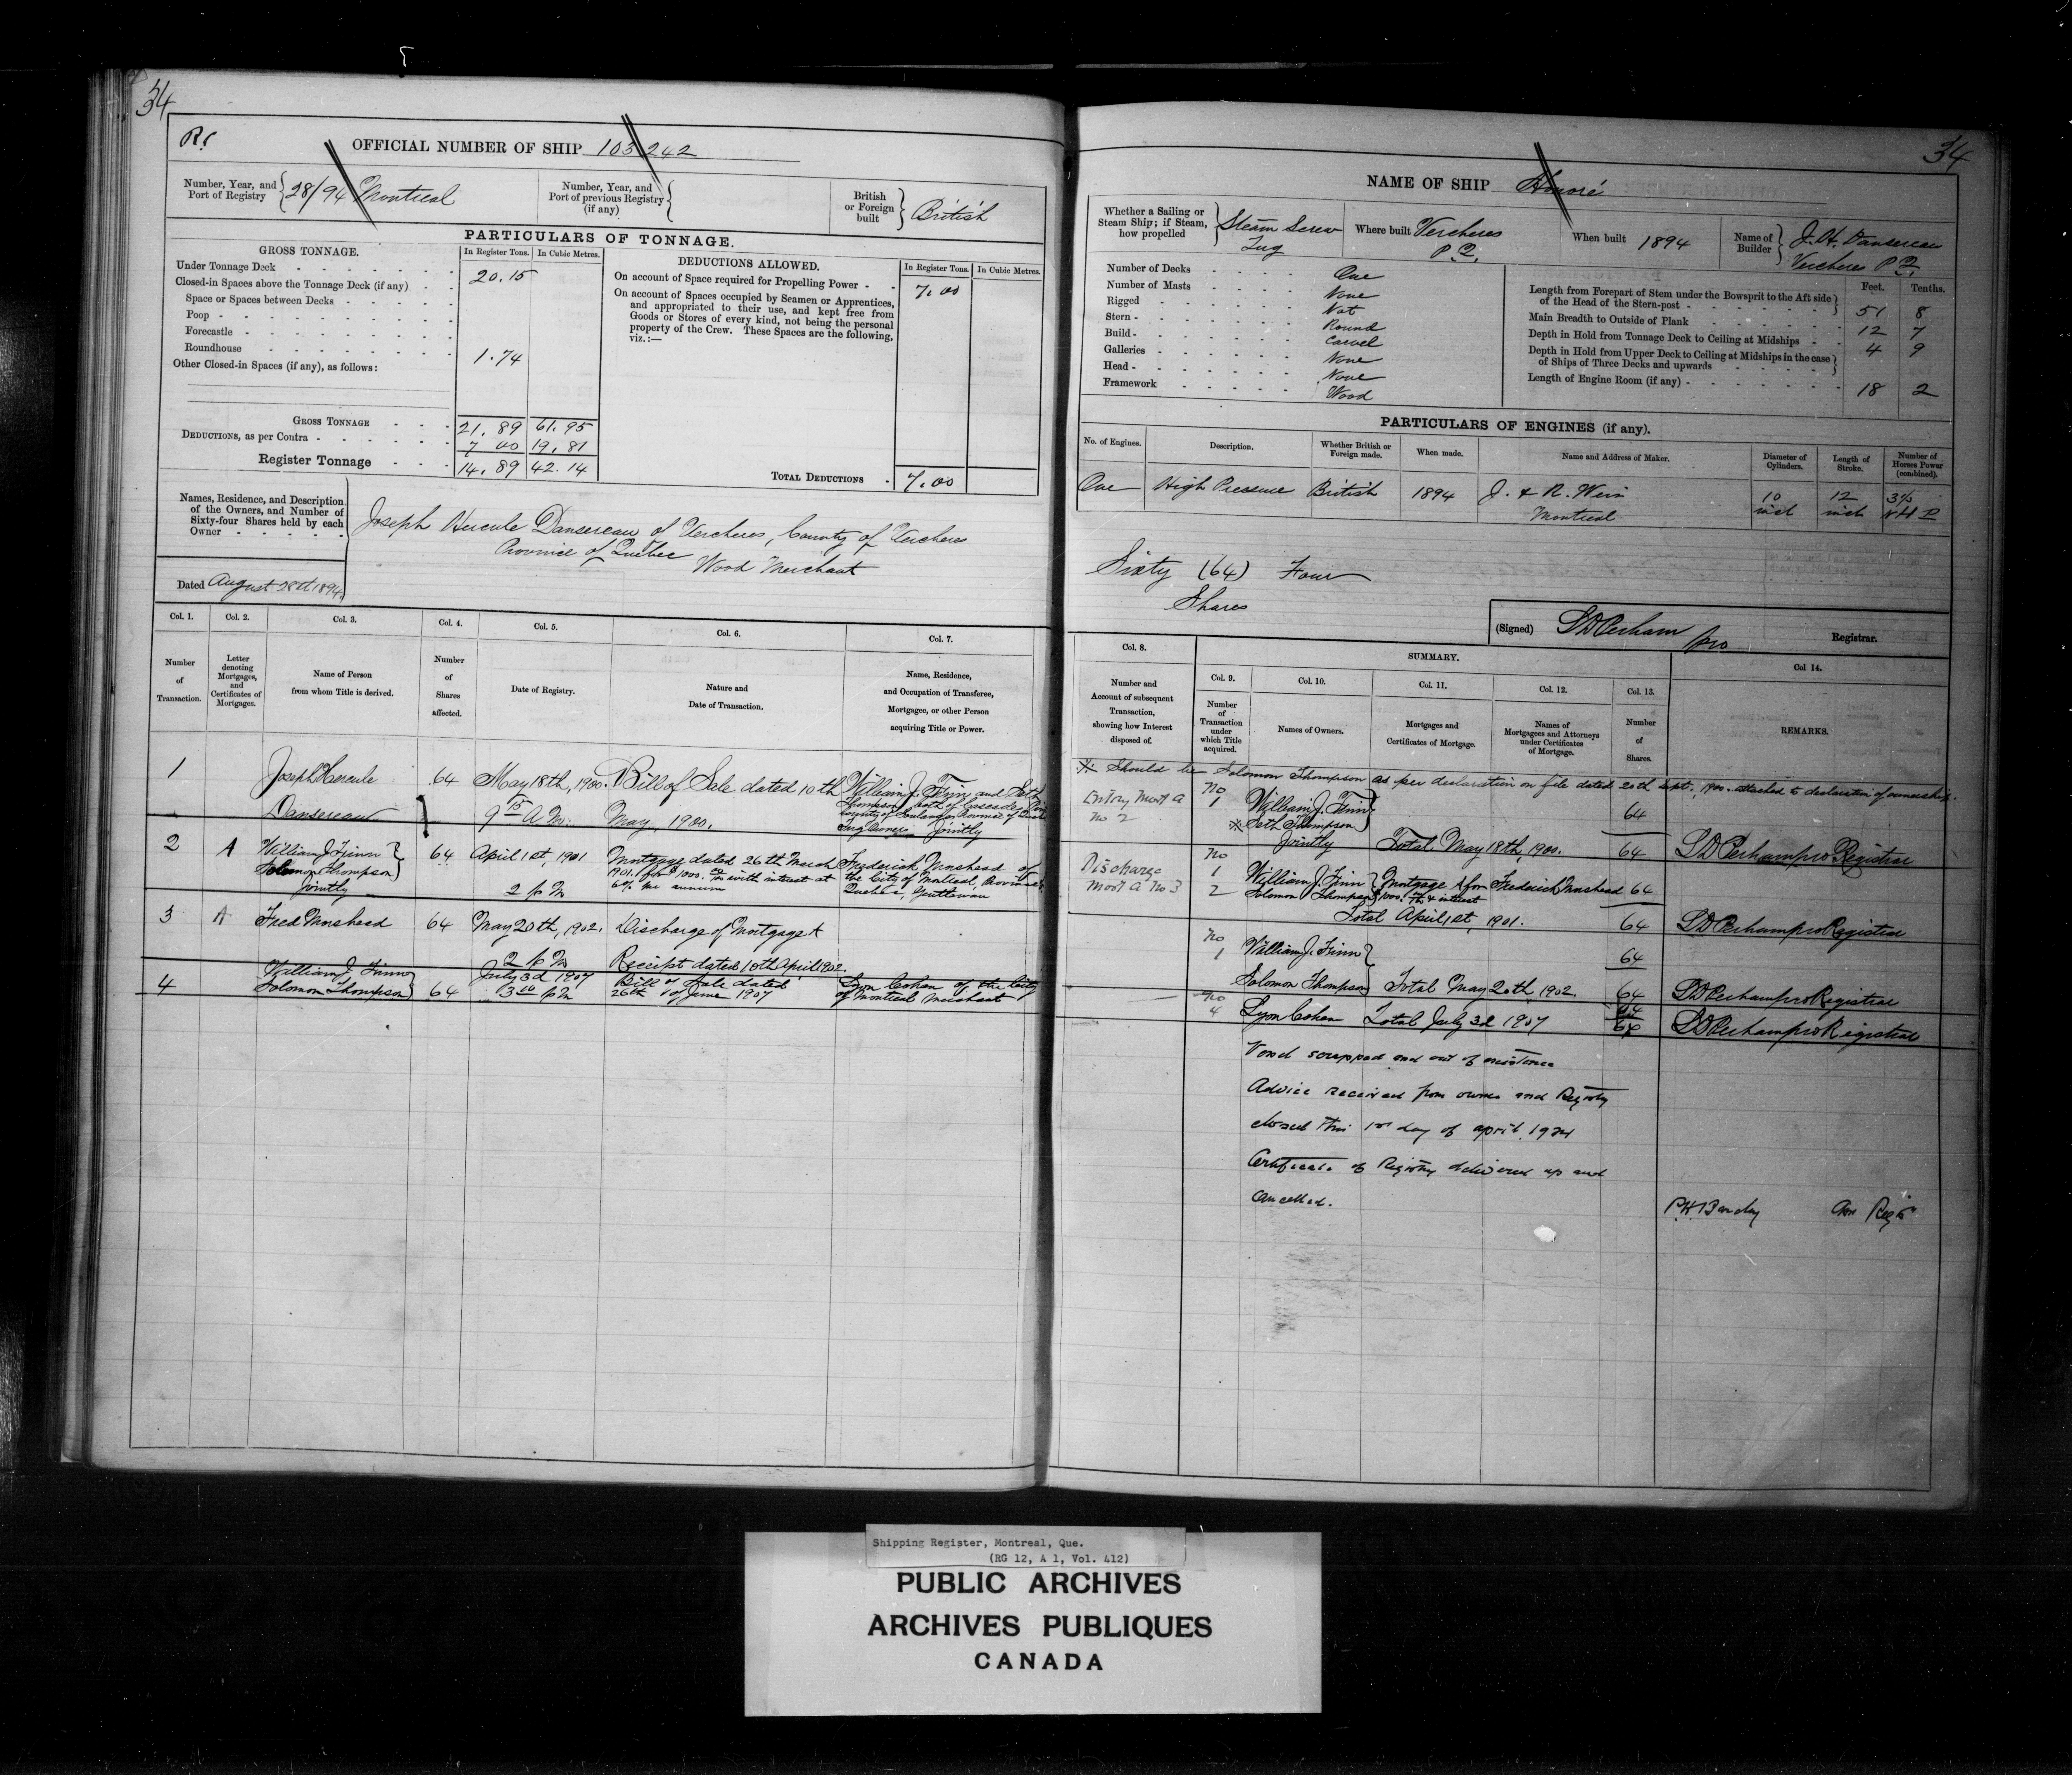 34
Rs
OFFICIAL NUMBER OF SHIP 103,242
Number, Year, and Port of Registry 28/94 Montreal
Number, Year, and Port of previous Registry (if any)
British or Foreign built British
PARTICULARS OF TONNAGE.
GROSS TONNAGE. In Register Tons. In Cubic Metres.
Under Tonnage Deck 20.15
Closed-in Spaces above the Tonnage Deck (if any)
Space or Spaces between Decks
Poop
Forecastle
Roundhouse 1.74
Other Closed-in Spaces (if any), as follows:
GROSS TONNAGE 21.89 61.95
DEDUCTIONS, as per Contra 7 00 19.81
Register Tonnage 14.89 42.14
DEDUCTIONS ALLOWED. In Register Tons. In Cubic Metres.
On account of Space required for Propelling Power 7.00
On account of Spaces occupied by Seamen or Apprentices,
and appropriated to their use, and kept free from
Goods or Stores of every kind, not being the personal
property of the Crew. These Spaces are the following,
viz.:—
TOTAL DEDUCTIONS 7.00
Names, Residence, and Description
of the Owners, and Number of
Sixty-four Shares held by each
Owner
Joseph Hercule Dansereau of Vercheres, County of Vercheres
Province of Quebec
Wood Merchant
Dated August 28th 1894.
Col. 1. Col. 2. Col. 3. Col. 4. Col. 5. Col. 6. Col. 7.
Number of Transaction.
Letter denoting Mortgages, and Certificates of Mortgages.
Name of Person from whom Title is derived.
Number of Shares affected.
Date of Registry.
Nature and Date of Transaction.
Name, Residence, and Occupation of Transferee, Mortgagee, or other Person acquiring Title or Power.
1 Joseph Hercule 64 May 18th, 1900. Bill of Sale dated 10th William J. Finn and Seth
Dansereau 9 15 A.M. May, 1900. Thompson both of Cascades
Tug Owners Jointly
2 A William J. Finn 64 April 1st, 1901 Mortgage dated 26th March Frederick Morshead of
Solomon Thompson 1901 for $1000. with interest at the City of Montreal, Province
Jointly 2 P M 6% per annum Quebec, Gentleman
3 A Fred Morshead 64 May 20th, 1902. Discharge of Mortgage A
2 P M Receipt dated 10th April 1902.
William J. Finn July 3d 1907 Bill of Sale dated Lyon Cohen of the City
4 Solomon Thompson 64 3 00 P M 26th of June 1907 of Montreal Merchant
34
NAME OF SHIP Honoré
Whether a Sailing or Steam Ship; if Steam, how propelled Steam Screw Tug
Where built Vercheres P.Q.
When built 1894
Name of Builder J. H. Dansereau Vercheres P.Q.
Number of Decks One
Number of Masts None
Rigged Not
Stern Round
Build Carvel
Galleries None
Head None
Framework Wood
Feet. Tenths.
Length from Forepart of Stem under the Bowsprit to the Aft side
of the Head of the Stern-post 51 8
Main Breadth to Outside of Plank 12 7
Depth in Hold from Tonnage Deck to Ceiling at Midships 4 9
Depth in Hold from Upper Deck to Ceiling at Midships in the case
of Ships of Three Decks and upwards
Length of Engine Room (if any) 18 2
PARTICULARS OF ENGINES (if any).
No. of Engines. Description. Whether British or Foreign made. When made. Name and Address of Maker. Diameter of Cylinders. Length of Stroke. Number of Horses Power (combined).
One High Pressure British 1894 J. & R. Weir 10 12
Montreal inch inch N H P
Sixty (64) Four
Shares
(Signed) S D Perham pro Registrar.
Col. 8. SUMMARY. Col 14.
Col. 9. Col. 10. Col. 11. Col. 12. Col. 13.
Number and Account of subsequent Transaction, showing how Interest disposed of.
Number of Transaction under which Title acquired.
Names of Owners.
Mortgages and Certificates of Mortgage.
Names of Mortgagees and Attorneys under Certificates of Mortgage.
Number of Shares.
REMARKS.
※ Should be Solomon Thompson as per declaration on file dated 20th Sept., 1900. attached to declaration of ownership.
Entry Mort A No 2
No 1 William J. Finn 64
※ Seth Thompson
Jointly Total May 18th, 1900. 64 S D Perham pro Registrar
Discharge Mort A No 3
No 1 William J. Finn Mortgage A for Frederick Morshead 64
2 Solomon Thompson $1000. & interest
Total April 1st, 1901. 64 S D Perham pro Registrar
No 1 William J. Finn 64
Solomon Thompson Total May 20th, 1902. 64 S D Perham pro Registrar
No 64
4 Lyon Cohen Total July 3d 1907 64 S D Perham pro Registrar
Vessel scrapped and out of existence
Advice received from owner and Registry
closed this 1st day of April, 1924
Certificate of Registry delivered up and
cancelled.
Registrar, Montreal, Que.
Shipping Register, Montreal, Que.
(RG 12, A 1, Vol. 412)
PUBLIC ARCHIVES
ARCHIVES PUBLIQUES
CANADA